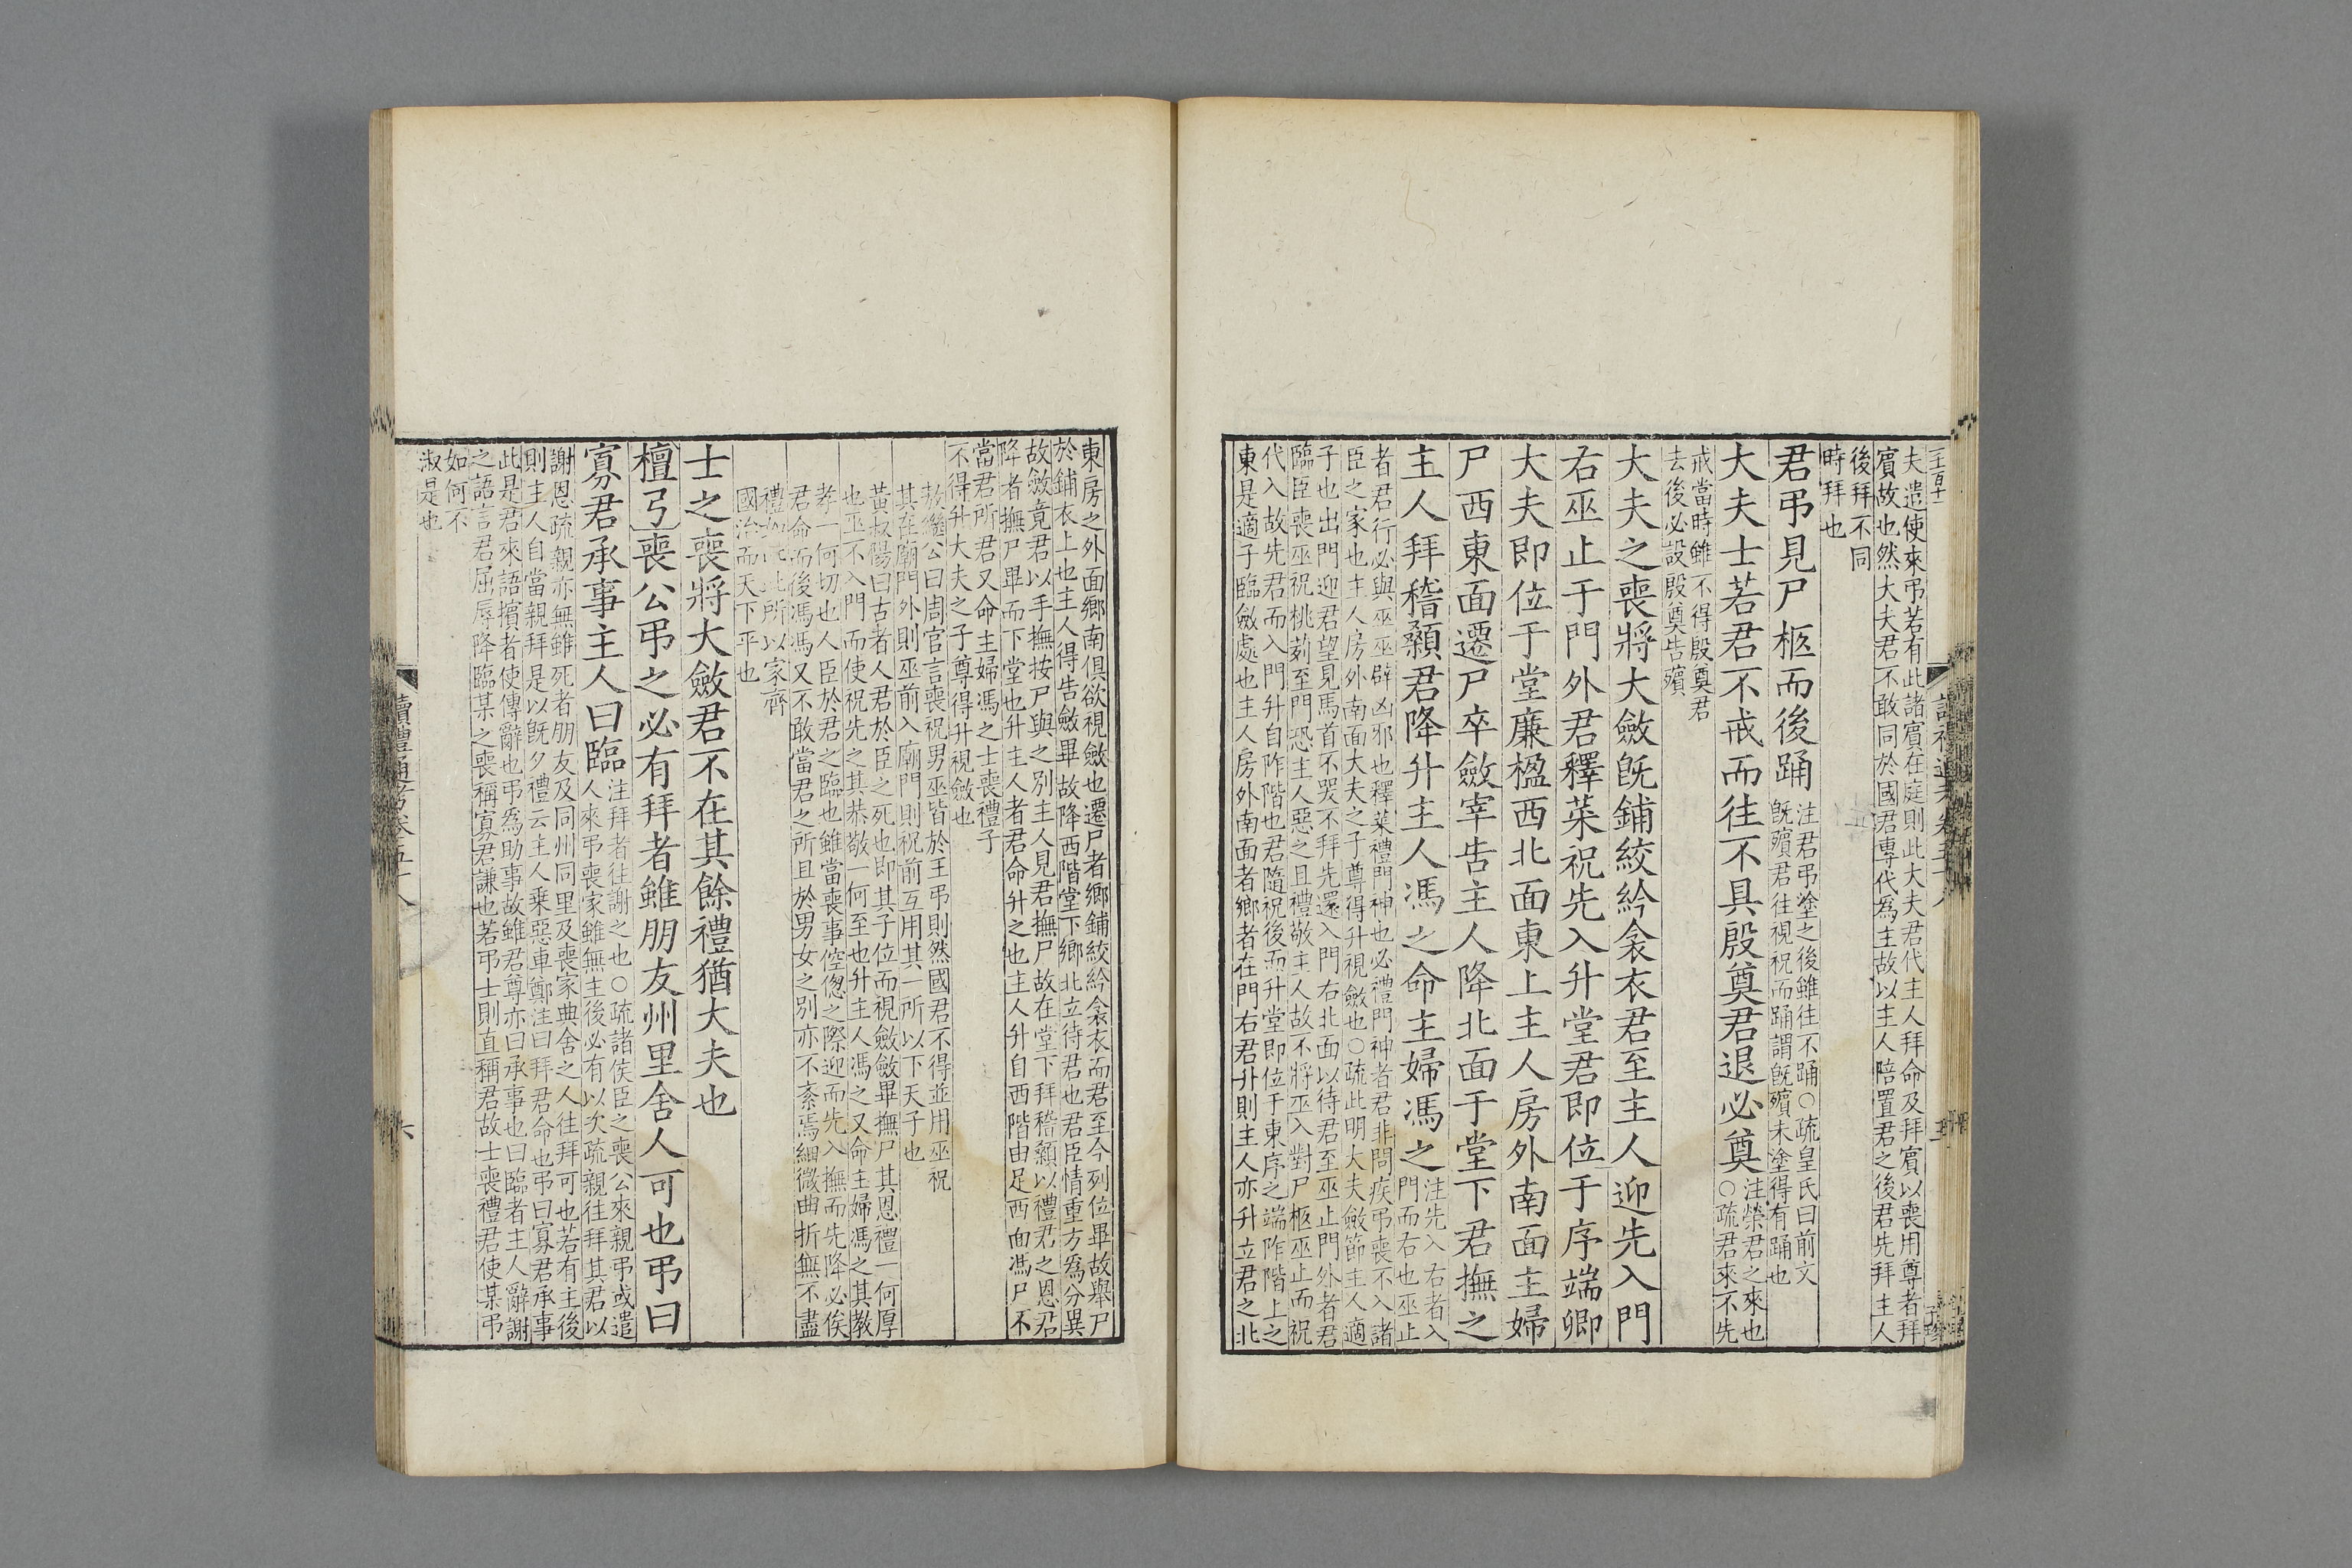 夫遣使來弔若有此諸賓在庭則此大夫君代主人拜命及拜賓以喪用尊者拜
賓故也然大夫君不敢同於國君專代為主故以主人陪置君之後君先拜主人
後拜不同
時拜也
君弔見尸柩而後踊
注君弔塗之後雖往不踊○疏皇氏曰前文
既殯君往視祝而踊謂既殯未塗得有踊也
大夫士若君不戒而往不具殷奠君退必奠
注榮君之來也
○疏君來不先
戒當時雖不得殷奠君
去後必設殷奠告殯
大夫之喪將大斂既鋪絞紟衾衣君至主人迎先入門
右巫止于門外君釋菜祝先入升堂君即位于序端卿
大夫即位于堂廉楹西北面東上主人房外南面主婦
尸西東面遷尸卒斂宰告主人降北面于堂下君撫之
主人拜稽顙君降升主人馮之命主婦馮之
注先入右者入
門而右也巫止
者君行必與巫巫辟凶邪也釋菜禮門神也必禮門神者君非問疾弔喪不入諸
臣之家也主人房外南面大夫之子尊得升視斂也○疏此明大夫斂節主人適
子也出門迎君望見馬首不哭不拜先還入門右北面以待君至巫止門外者君
臨臣喪巫祝桃茢至門恐主人惡之且禮敬主人故不將巫入對尸柩巫止而祝
代入故先君而入門升自阼階也君隨祝後而升堂即位于東序之端阼階上之
東是適子臨斂處也主人房外南面者鄉者在門右君升則主人亦升立君之北
東房之外面鄉南俱欲視斂也遷尸者鄉鋪絞紟衾衣而君至今列位畢故舉尸
於鋪衣上也主人得告斂畢故降西階堂下鄉北立待君也君臣情重方為分異
故斂竟君以手撫按尸與之別主人見君撫尸故在堂下拜稽顙以禮君之恩君
降者撫尸畢而下堂也升主人者君命升之也主人升自西階由足西面馮尸不
當君所君又命主婦馮之士喪禮子
不得升大夫之子尊得升視斂也
敖繼公曰周官言喪祝男巫皆於王弔則然國君不得並用巫祝
其在廟門外則巫前入廟門則祝前互用其一所以下天子也
黃叔陽曰古者人君於臣之死也即其子位而視斂斂畢撫尸其恩禮一何厚
也巫不入門而使祝先之其恭敬一何至也升主人馮之又命主婦馮之其教
孝一何切也人臣於君之臨也雖當喪事倥偬之際迎而先入撫而先降必俟
君命而後馮馮又不敢當君之所且於男女之別亦不紊焉細微曲折無不盡
禮如此此所以家齊
國治而天下平也
士之喪將大斂君不在其餘禮猶大夫也
檀弓喪公弔之必有拜者雖朋友州里舍人可也弔曰
寡君承事主人曰臨
注拜者往謝之也○疏諸侯臣之喪公來親弔或遣
人來弔喪家雖無主後必有以次疏親往拜其君以
謝恩疏親亦無雖死者朋友及同州同里及喪家典舍之人往拜可也若有主後
則主人自當親拜是以既夕禮云主人乘惡車鄭注曰拜君命也弔曰寡君承事
此是君來語擯者使傳辭也弔為助事故雖君尊亦曰承事也曰臨者主人辭謝
之語言君屈辱降臨某之喪稱寡君謙也若弔士則直稱君故士喪禮君使某弔
如何不
淑是也
讀禮通考卷五十八
六